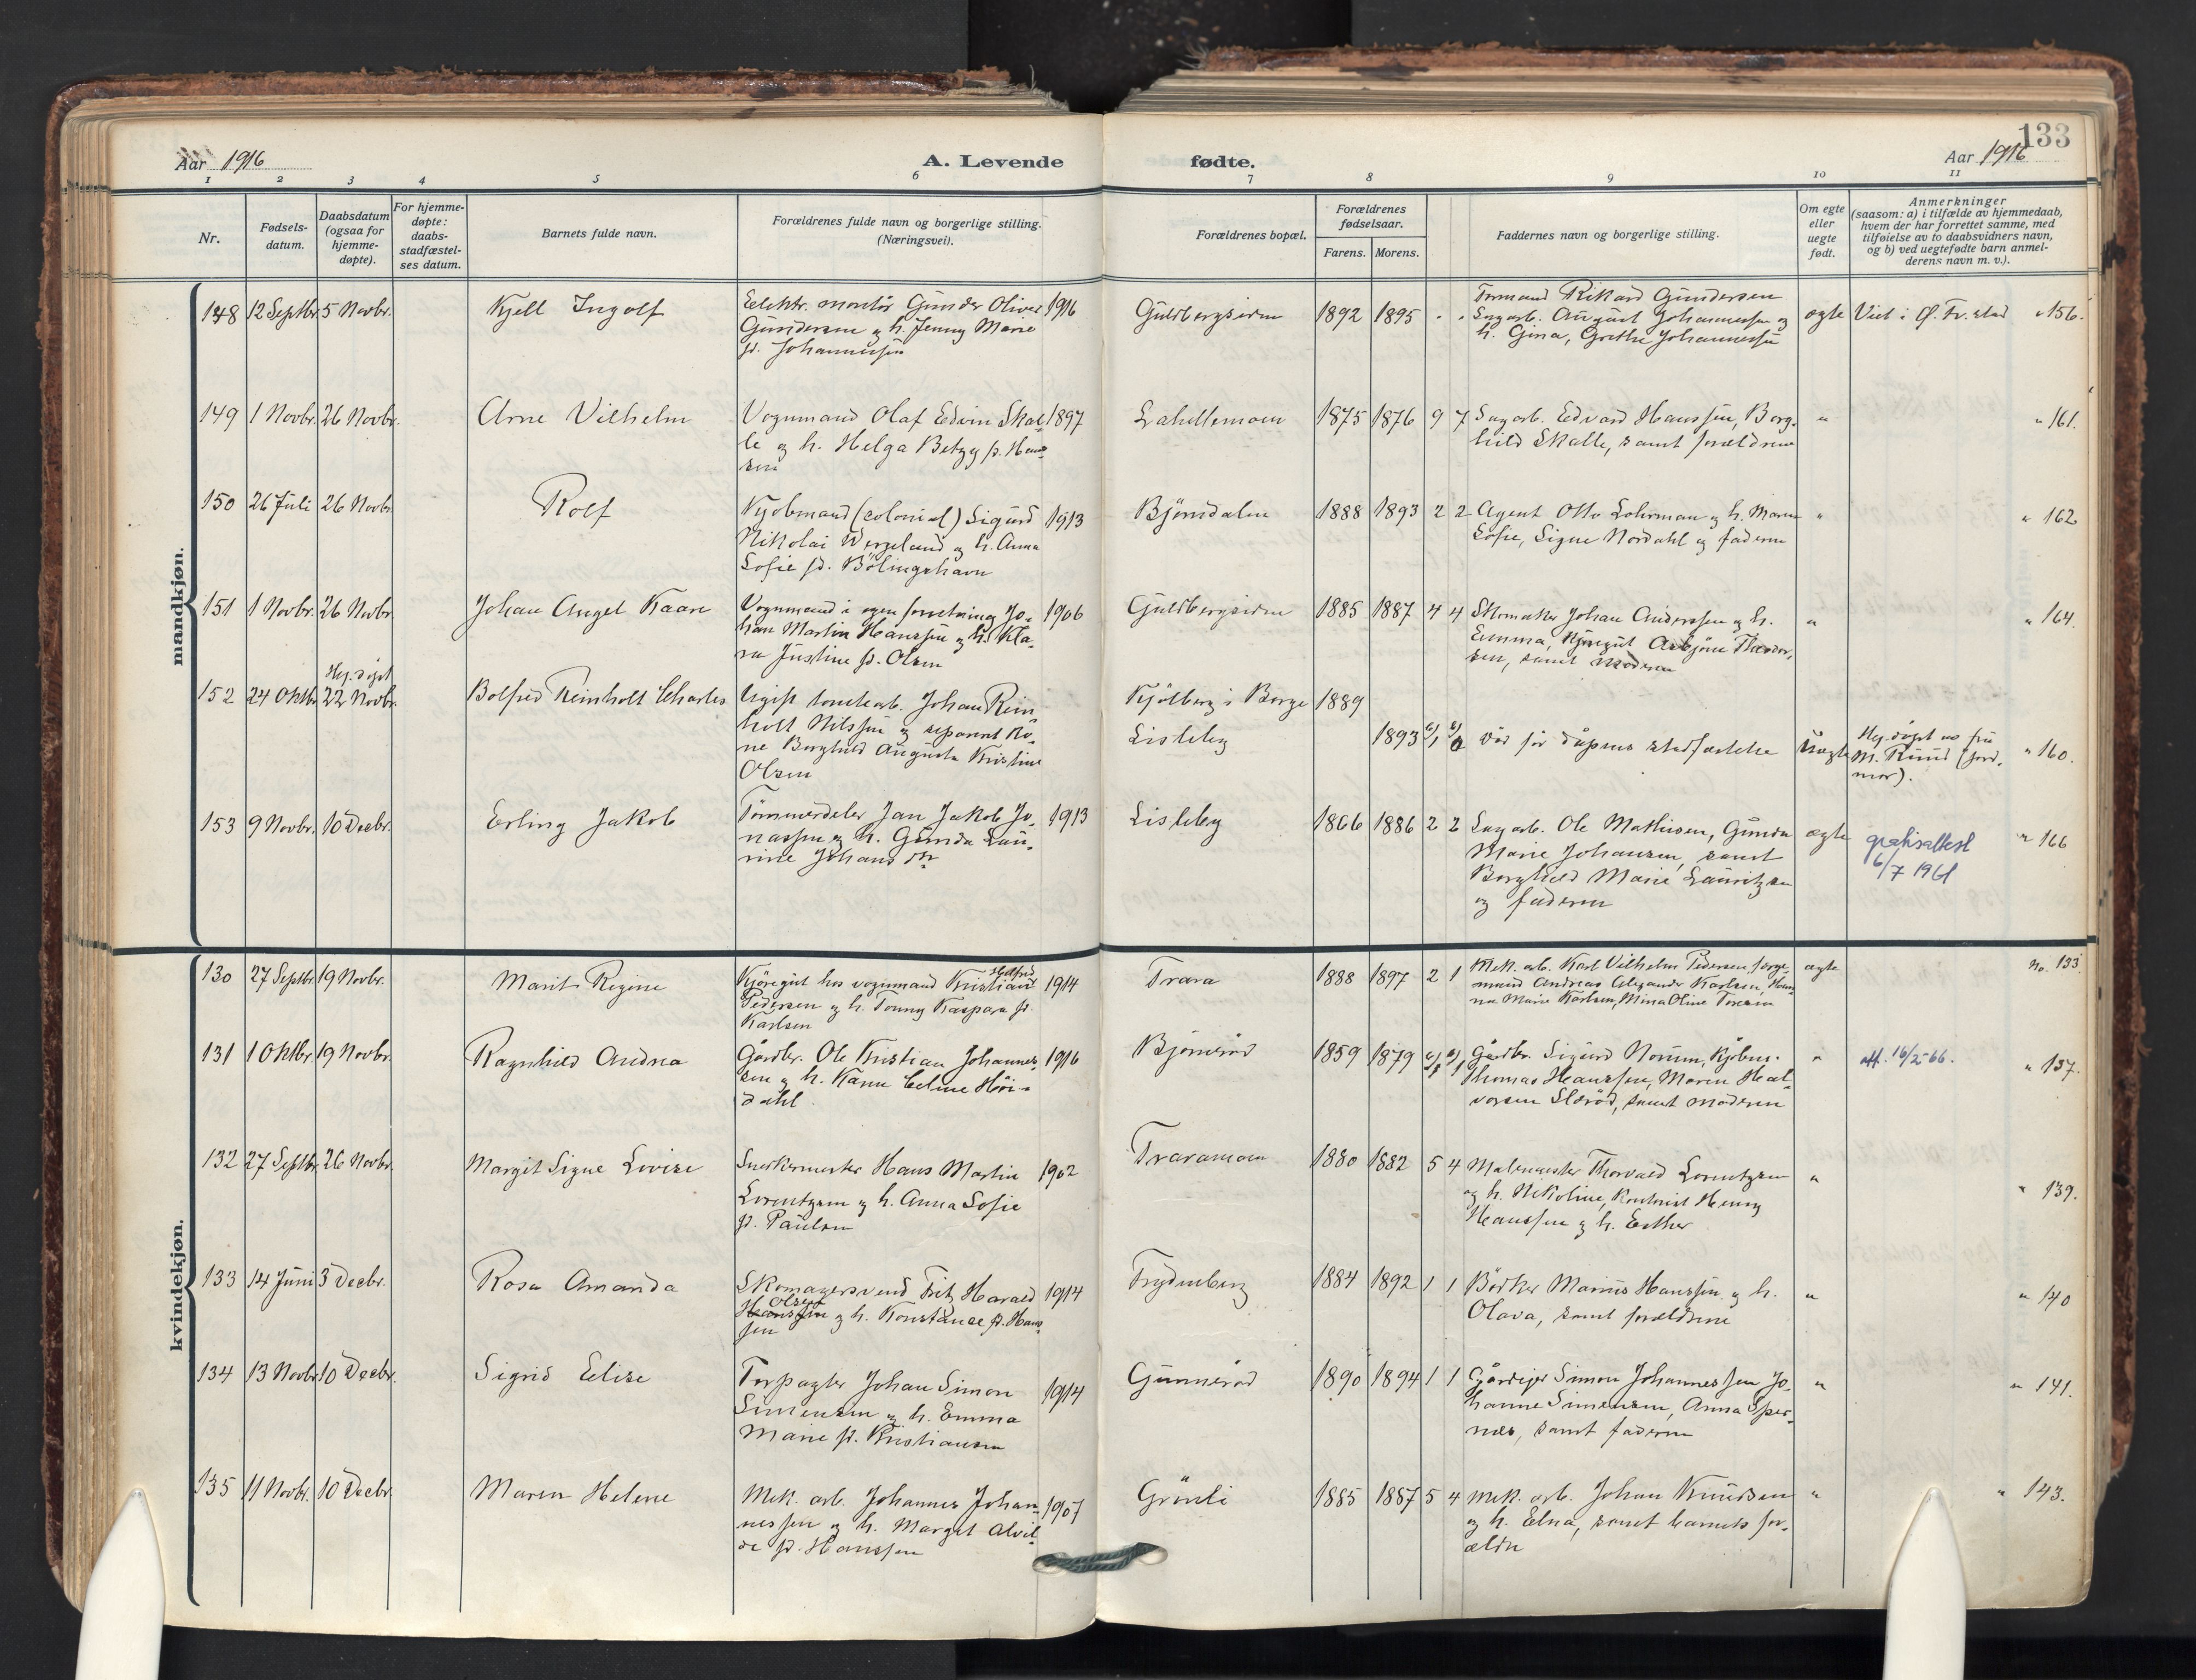 133
Aar 1916
A. Levende
fødte.
Aar 1916
1 2 3 4 5 6 7 8 9 10 11
Nr.
Fødsels-
datum.
Daabsdatum
(ogsaa for
hjemme-
døpte).
For hjemme-
døpte:
daabs-
stadfæstel-
ses datum.
Barnets fulde navn.
Forældrenes fulde navn og borgerlige stilling.
(Næringsvei).
Forældrenes bopæl.
Forældrenes
fødselsaar.
Farens. Morens.
Faddernes navn og borgerlige stilling.
Om egte
eller
uegte
født.
Anmerkninger
(saasom: a) i tilfælde av hjemmedaab,
hvem der har forrettet samme, med
tilføielse av to daabsvidners navn,
og b) ved uegtefødte barn anmel-
derens navn m. v.).
mandkjøn.
148 12 Septbr. 5 Novbr. Kjell Ingolf
Elektr. montør Gunder Oliver 1916
Gundersen og h. Jenny Marie
fd. Johannessen
Guldbergsiden 1892 1895 " "
Formand Rikard Gundersen
Sagarb. August Johannessen og
h. Gina, Grethe Johannessen
ægte Viet i Ø. Fr.stad " 156.
149 1 Novbr. 26 Novbr. Arne Vilhelm
Vognmand Olaf Edvin Skal- 1897
le og h. Helga Betzy f. Han-
sen
Lahellemoen 1875 1876 9 7
Sagarb. Edvard Hanssen, Borg-
hild Skalle, samt forældrene
" " 161.
150 26 Juli 26 Novbr. Rolf
Kjøbmand (kolonial) Sigurd 1913
Nikolai Wergeland og h. Anna
Sofie fd. Bölingshavn
Björndalen 1888 1893 2 2
Agent Otto Lohrman og h. Maren
Sofie, Signe Nordahl og faderen
" " 162
151 1 Novbr. 26 Novbr. Johan Angel Kaare
Vognmand i egen forretning Jo- 1906
han Martin Hanssen og h. Kla-
ra Justine fd. Olsen
Guldbergsiden 1885 1887 4 4
Skomaker Johan Anderssen og h.
Emma, Kjøregut Asbjørn Theodor-
sen, samt moderen
" " 164.
Hj. døpt
152 24 Oktbr. 22 Novbr. Bolfred Reinholt Charles
Ugift tomtearb. Johan Rein-
holt Nilssen og separert ko-
ne Borghild Augusta Kristine
Olsen
Kjölberg i Borge 1889
Lisleby 1893
död før dåpens stadfæstelse
Uægte
Hj. döpt av fru
M. Ruud (jord-
mor). " 160.
153 9 Novbr. 10 Decbr. Erling Jakob
Tömmerdeler Jan Jakob Jo- 1913
nassen og h. Gunda Lau-
rine Johansdtr
Lisleby 1866 1886 2 2
Sagarb. Ole Mathisen, Gunda
Marie Johansen, samt
Borghild Marie Lauritzen
og faderen
ægte gratisattest
6/7 1961 " 166
kvindekjøn.
130 27 Septbr. 19 Novbr. Marit Regine
Kjöregut hos vognmand Kristian 1914
Pedersen og h. Tonny Kaspara fd.
Karlsen
Trara 1888 1897 2 1
Mek. arb. Karl Vilhelm Pedersen, forge-
mand Andreas Alexander Karlsen, Han-
na Marie Karlsen, Mina Oline
ægte No. 133
131 1 Oktbr. 19 Novbr. Ragnhild Andrea
Gårdbr. Ole Kristian Johannes- 1916
sen og h. Karen Celine Höi-
dahl
Björneröd 1859 1879
Gårdbr. Sigurd Norum, Kjøbm.
Thomas Hanssen, Maren Hal-
vorsen Sleröd, samt moderen
" att. 16/2-66. " 137.
132 27 Septbr. 26 Novbr. Margit Signe Lovise
Snekkermester Hans Martin 1902
Lorentzen og h. Anna Sofie
fd. Paulsen
Traramoen 1880 1882 5 4
Malermester Thorvald Lorentzen
og h. Nikoline, Kontorist Henry
Hanssen og h. Esther
" " 139.
133 14 Juni 3 Decbr. Rosa Amanda
Skomagersvend Fritz Harald 1914
Olsen
Hanssen og h. Konstance fd. Hans-
sen
Frydenberg 1884 1892 1 1
Bödker Marius Hanssen og h.
Olava, samt forældrene
" " 140
134 13 Novbr. 10 Decbr. Sigrid Elise
Forpagter Johan Simon 1914
Simensen og h. Emma
Marie fd. Kristiansen
Gunneröd 1890 1894 1 1
Gårdejer Simon Johannessen Jo-
hanne Simensen, Anna Sper-
nes, samt faderen
" " 141.
135 11 Novbr. 10 Decbr. Maren Helene
Mek. arb. Johannes Johan- 1907
nessen og h. Margit Alvil-
de fd. Hanssen
Grönli 1885 1887 5 4
Mek. arb. Johan Knudsen
og h. Elna, samt barnets for-
ældre
" " 143.